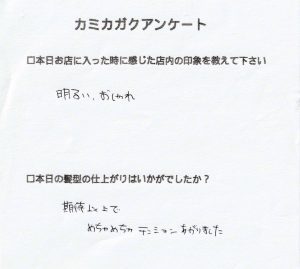 カミカガクアンケート
□本日お店に入った時に感じた店内の印象を教えて下さい
明るい、おしゃれ
□本日の髪型の仕上がりはいかがでしたか？
期待以上で
めちゃめちゃ テンション あがりました